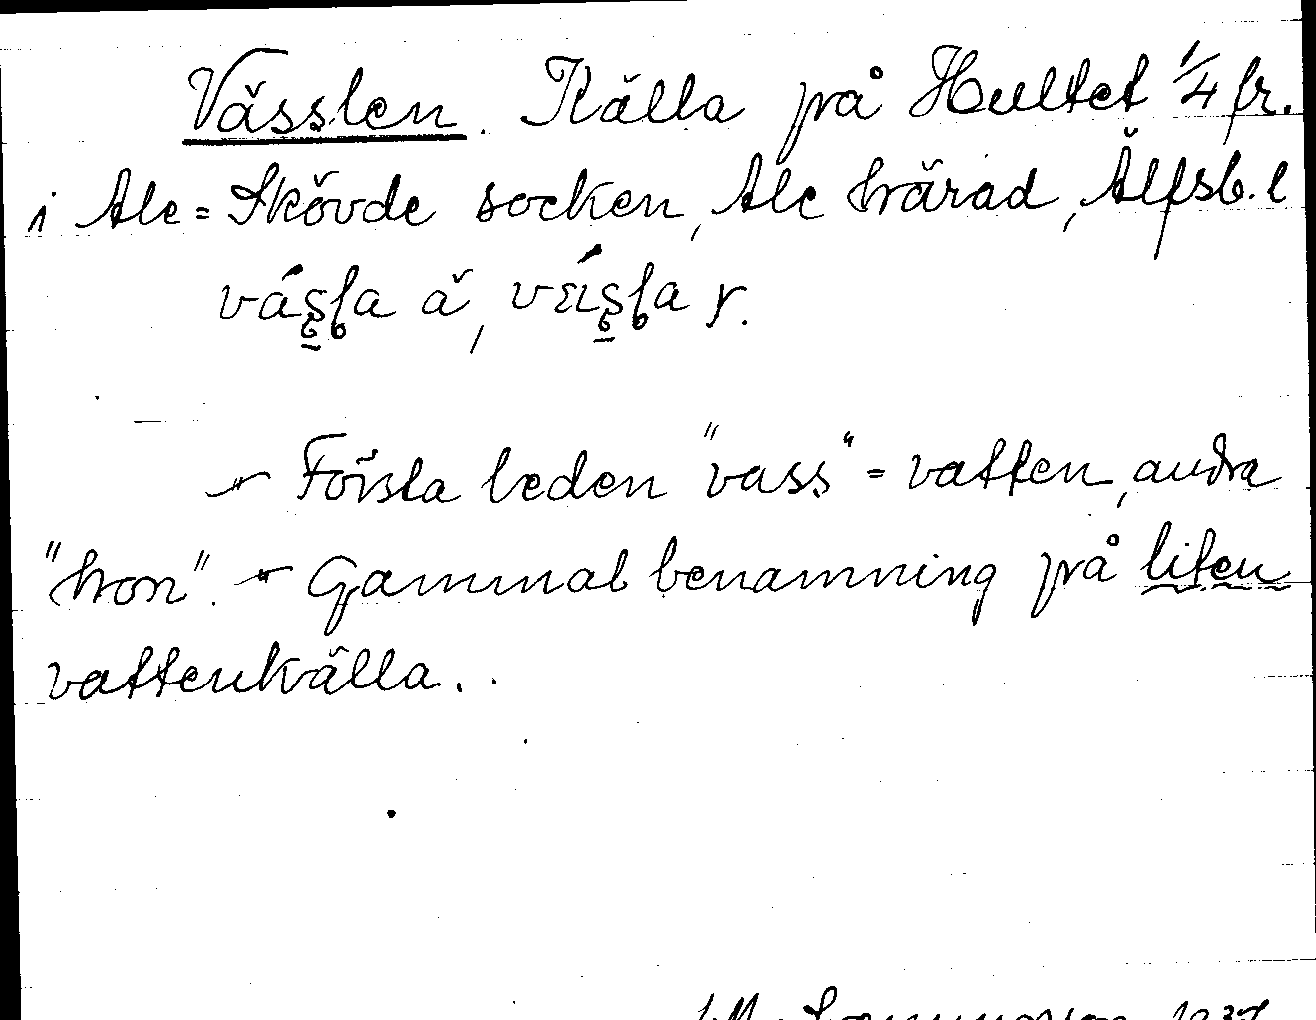 Vässlen. Källa på Hultet 1/4 fr.
i Ale=Skövde socken, Ale härad, Älfsb. l
Första leden "vass" = vatten, andra
"hon". - Gammal benämning på liten
vattenkälla.
1937